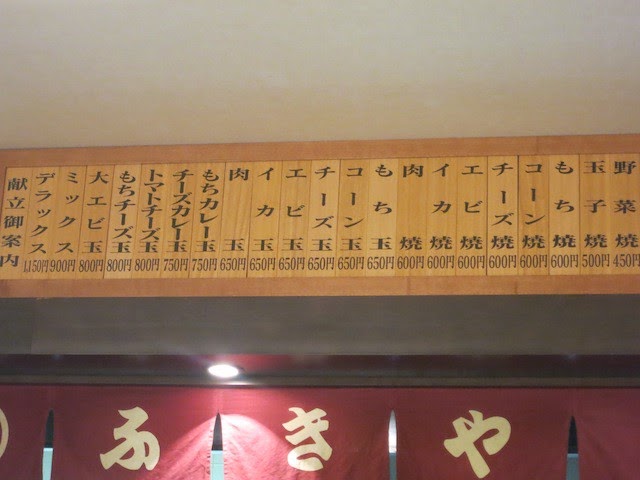 野菜焼 450円
玉子焼 500円
もち焼 600円
コーン焼 600円
チーズ焼 600円
エビ焼 600円
イカ焼 600円
肉焼 600円
もち玉 650円
コーン玉 650円
チーズ玉 650円
エビ玉 650円
イカ玉 650円
肉玉 650円
もちカレー玉 750円
チーズカレー玉 750円
トマトチーズ玉 800円
もちチーズ玉 800円
大エビ玉 800円
ミックス 900円
デラックス 1,150円
献立御案内
ふきや